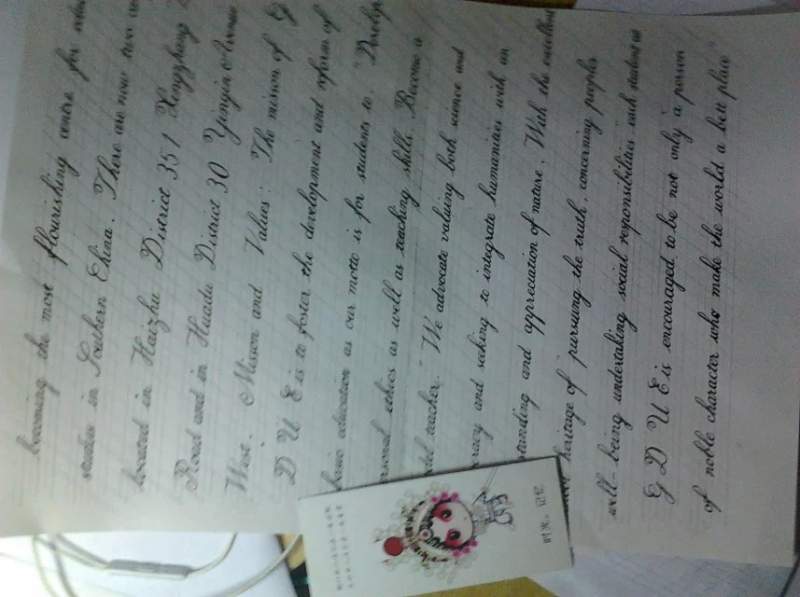 becoming the most flourishing centre for
studies in Southern China. There are now two
located in Haizhu District 351 Xingzhong
Road and in Huadu District 30 Yingin Avenue
West. Mission and Values: The mission of G
D U E is to foster the development and reform of
basic education as our motto is for students to "Develop
ersonal ethics as well as teaching skills. Become a
del teacher." We advocate valuing both science and
cracy and seeking to integrate humanities with an
standing and appreciation of nature. With the excellent
heritage of pursuing the truth, concerning peoples
well-being undertaking social responsibilities each student at
G D U E is encouraged to be not only a person
of noble character who make the world a bett place"
时光。记忆